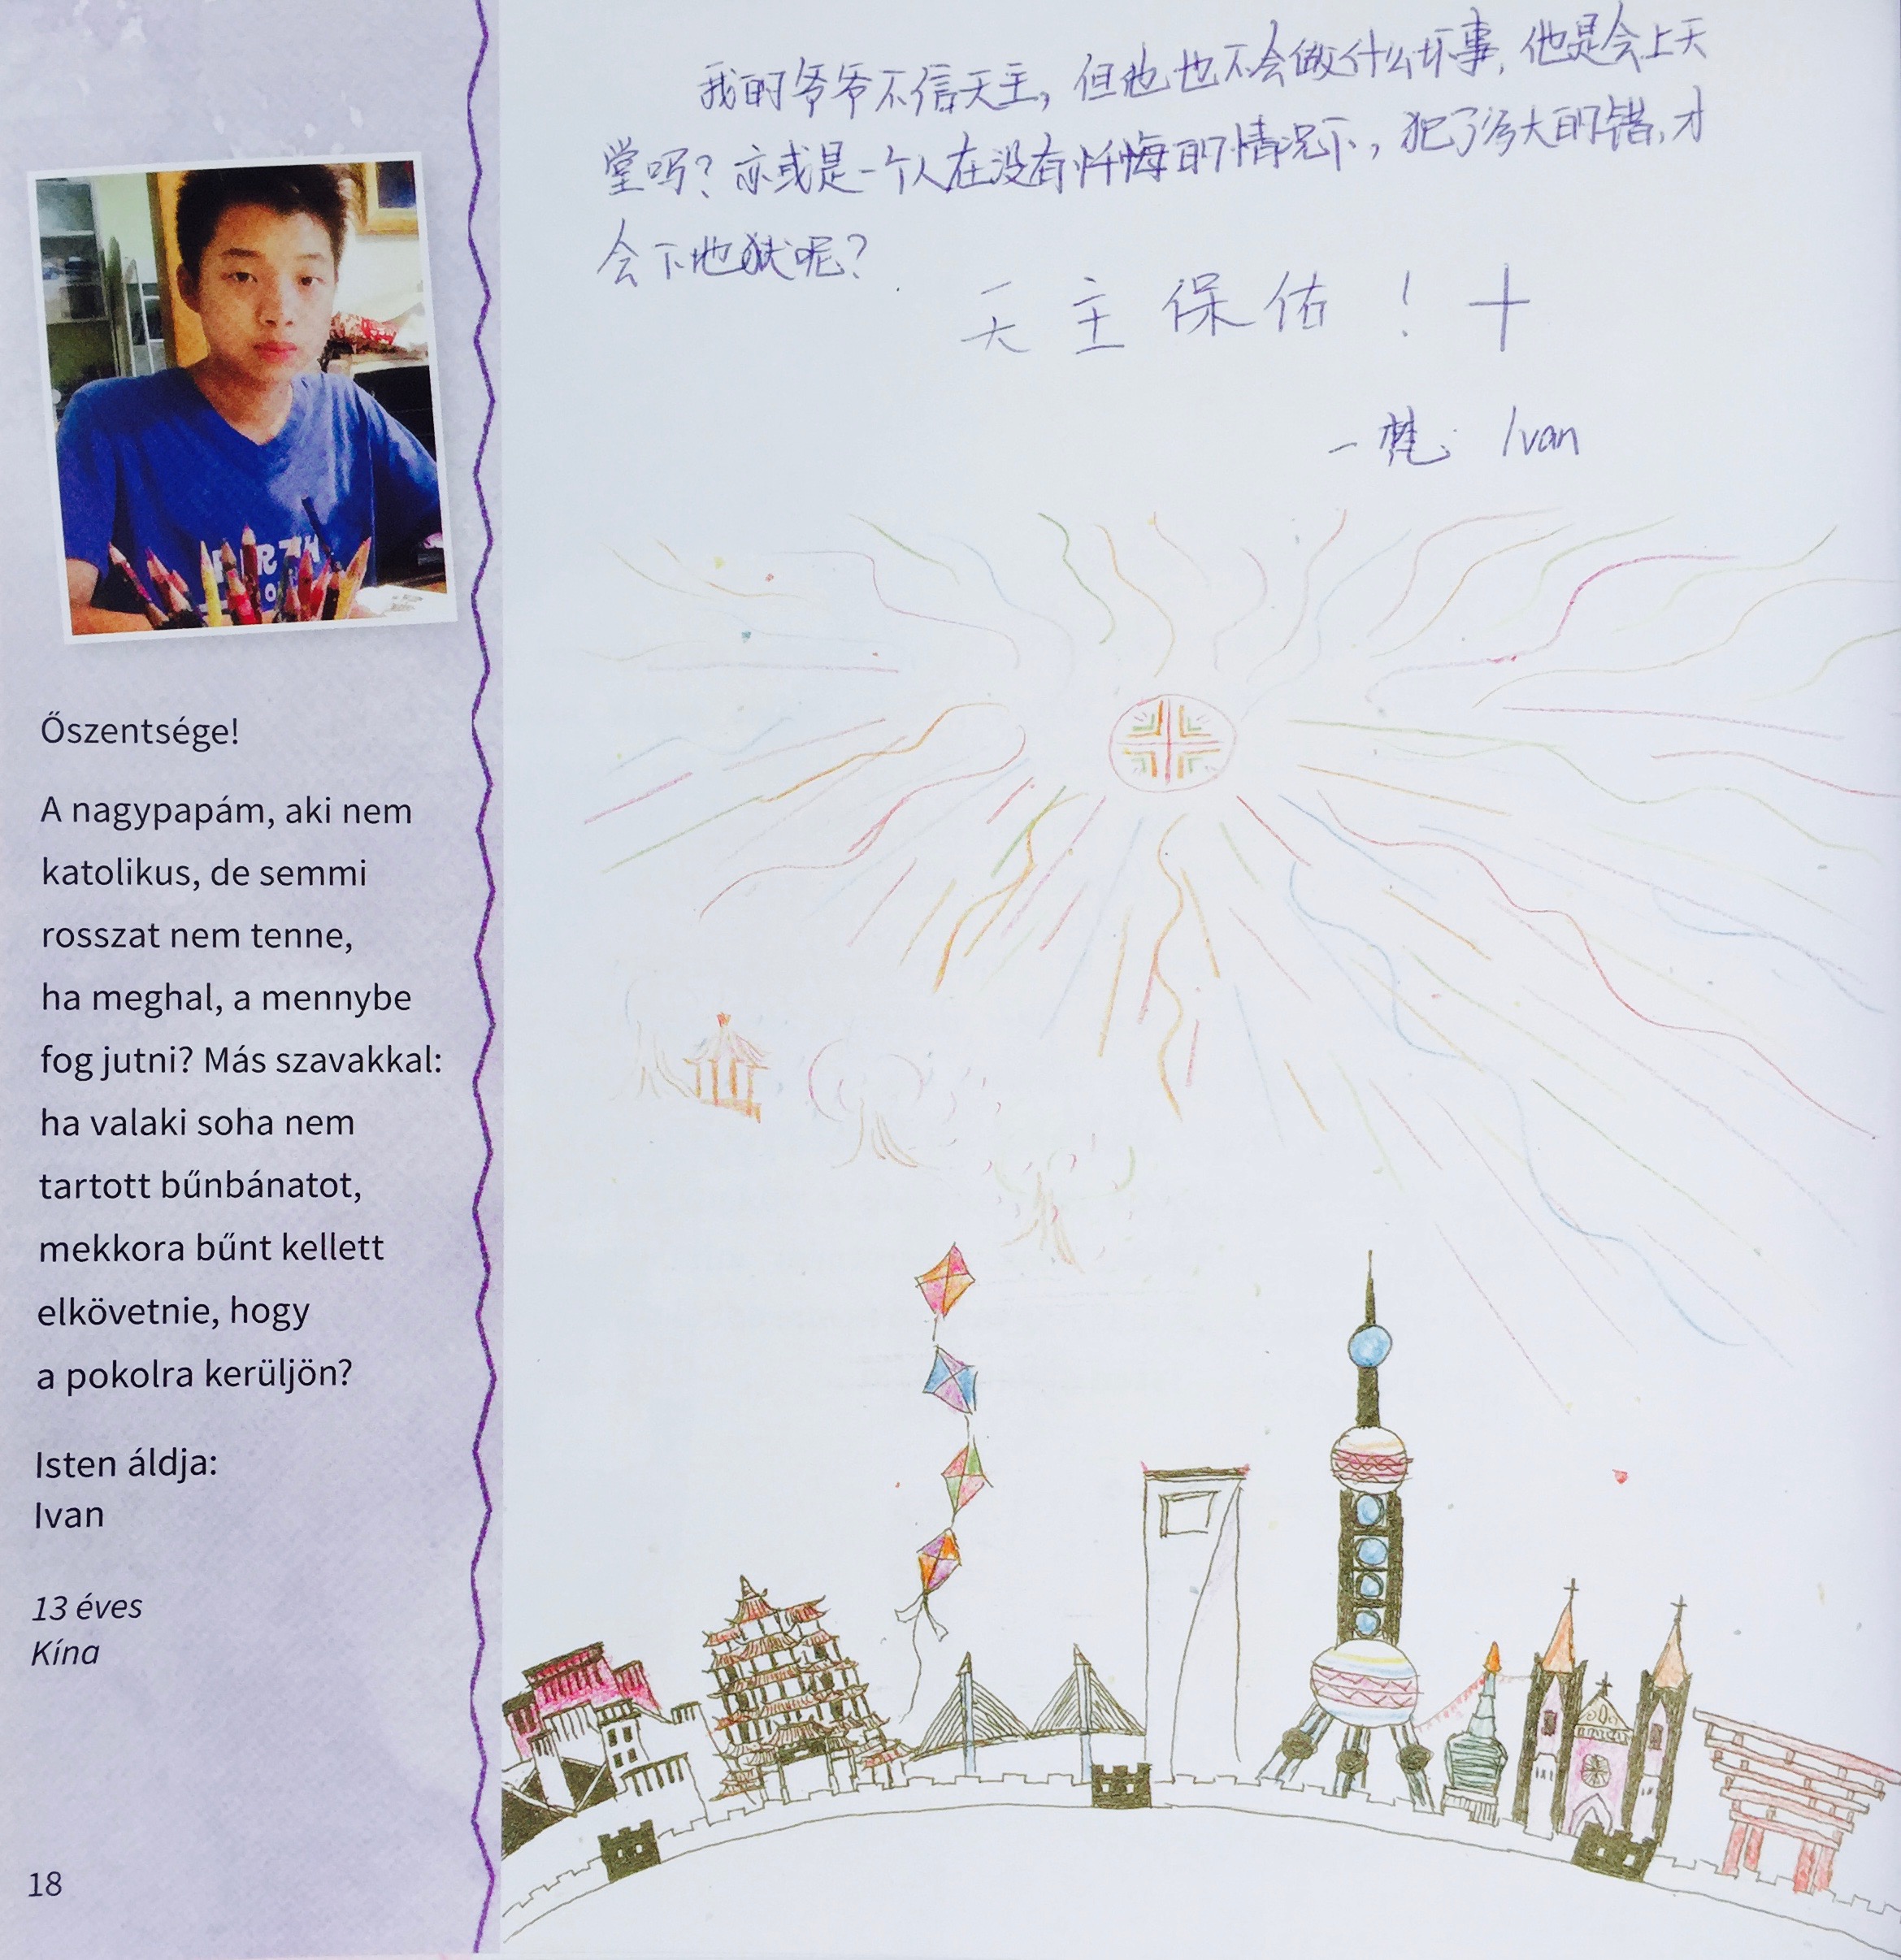 Őszentsége!
A nagypapám, aki nem
katolikus, de semmi
rosszat nem tenne,
ha meghal, a mennybe
fog jutni? Más szavakkal:
ha valaki soha nem
tartott bűnbánatot,
mekkora bűnt kellett
elkövetnie, hogy
a pokolra kerüljön?
Isten áldja:
Ivan
13 éves
Kína
18
我的爷爷不信天主，但他也不会做什么坏事，他是会上天
堂吗？亦或是一个人在没有忏悔的情况下，犯了多大的错，才
会下地狱呢？
天主保佑！
一梵 Ivan